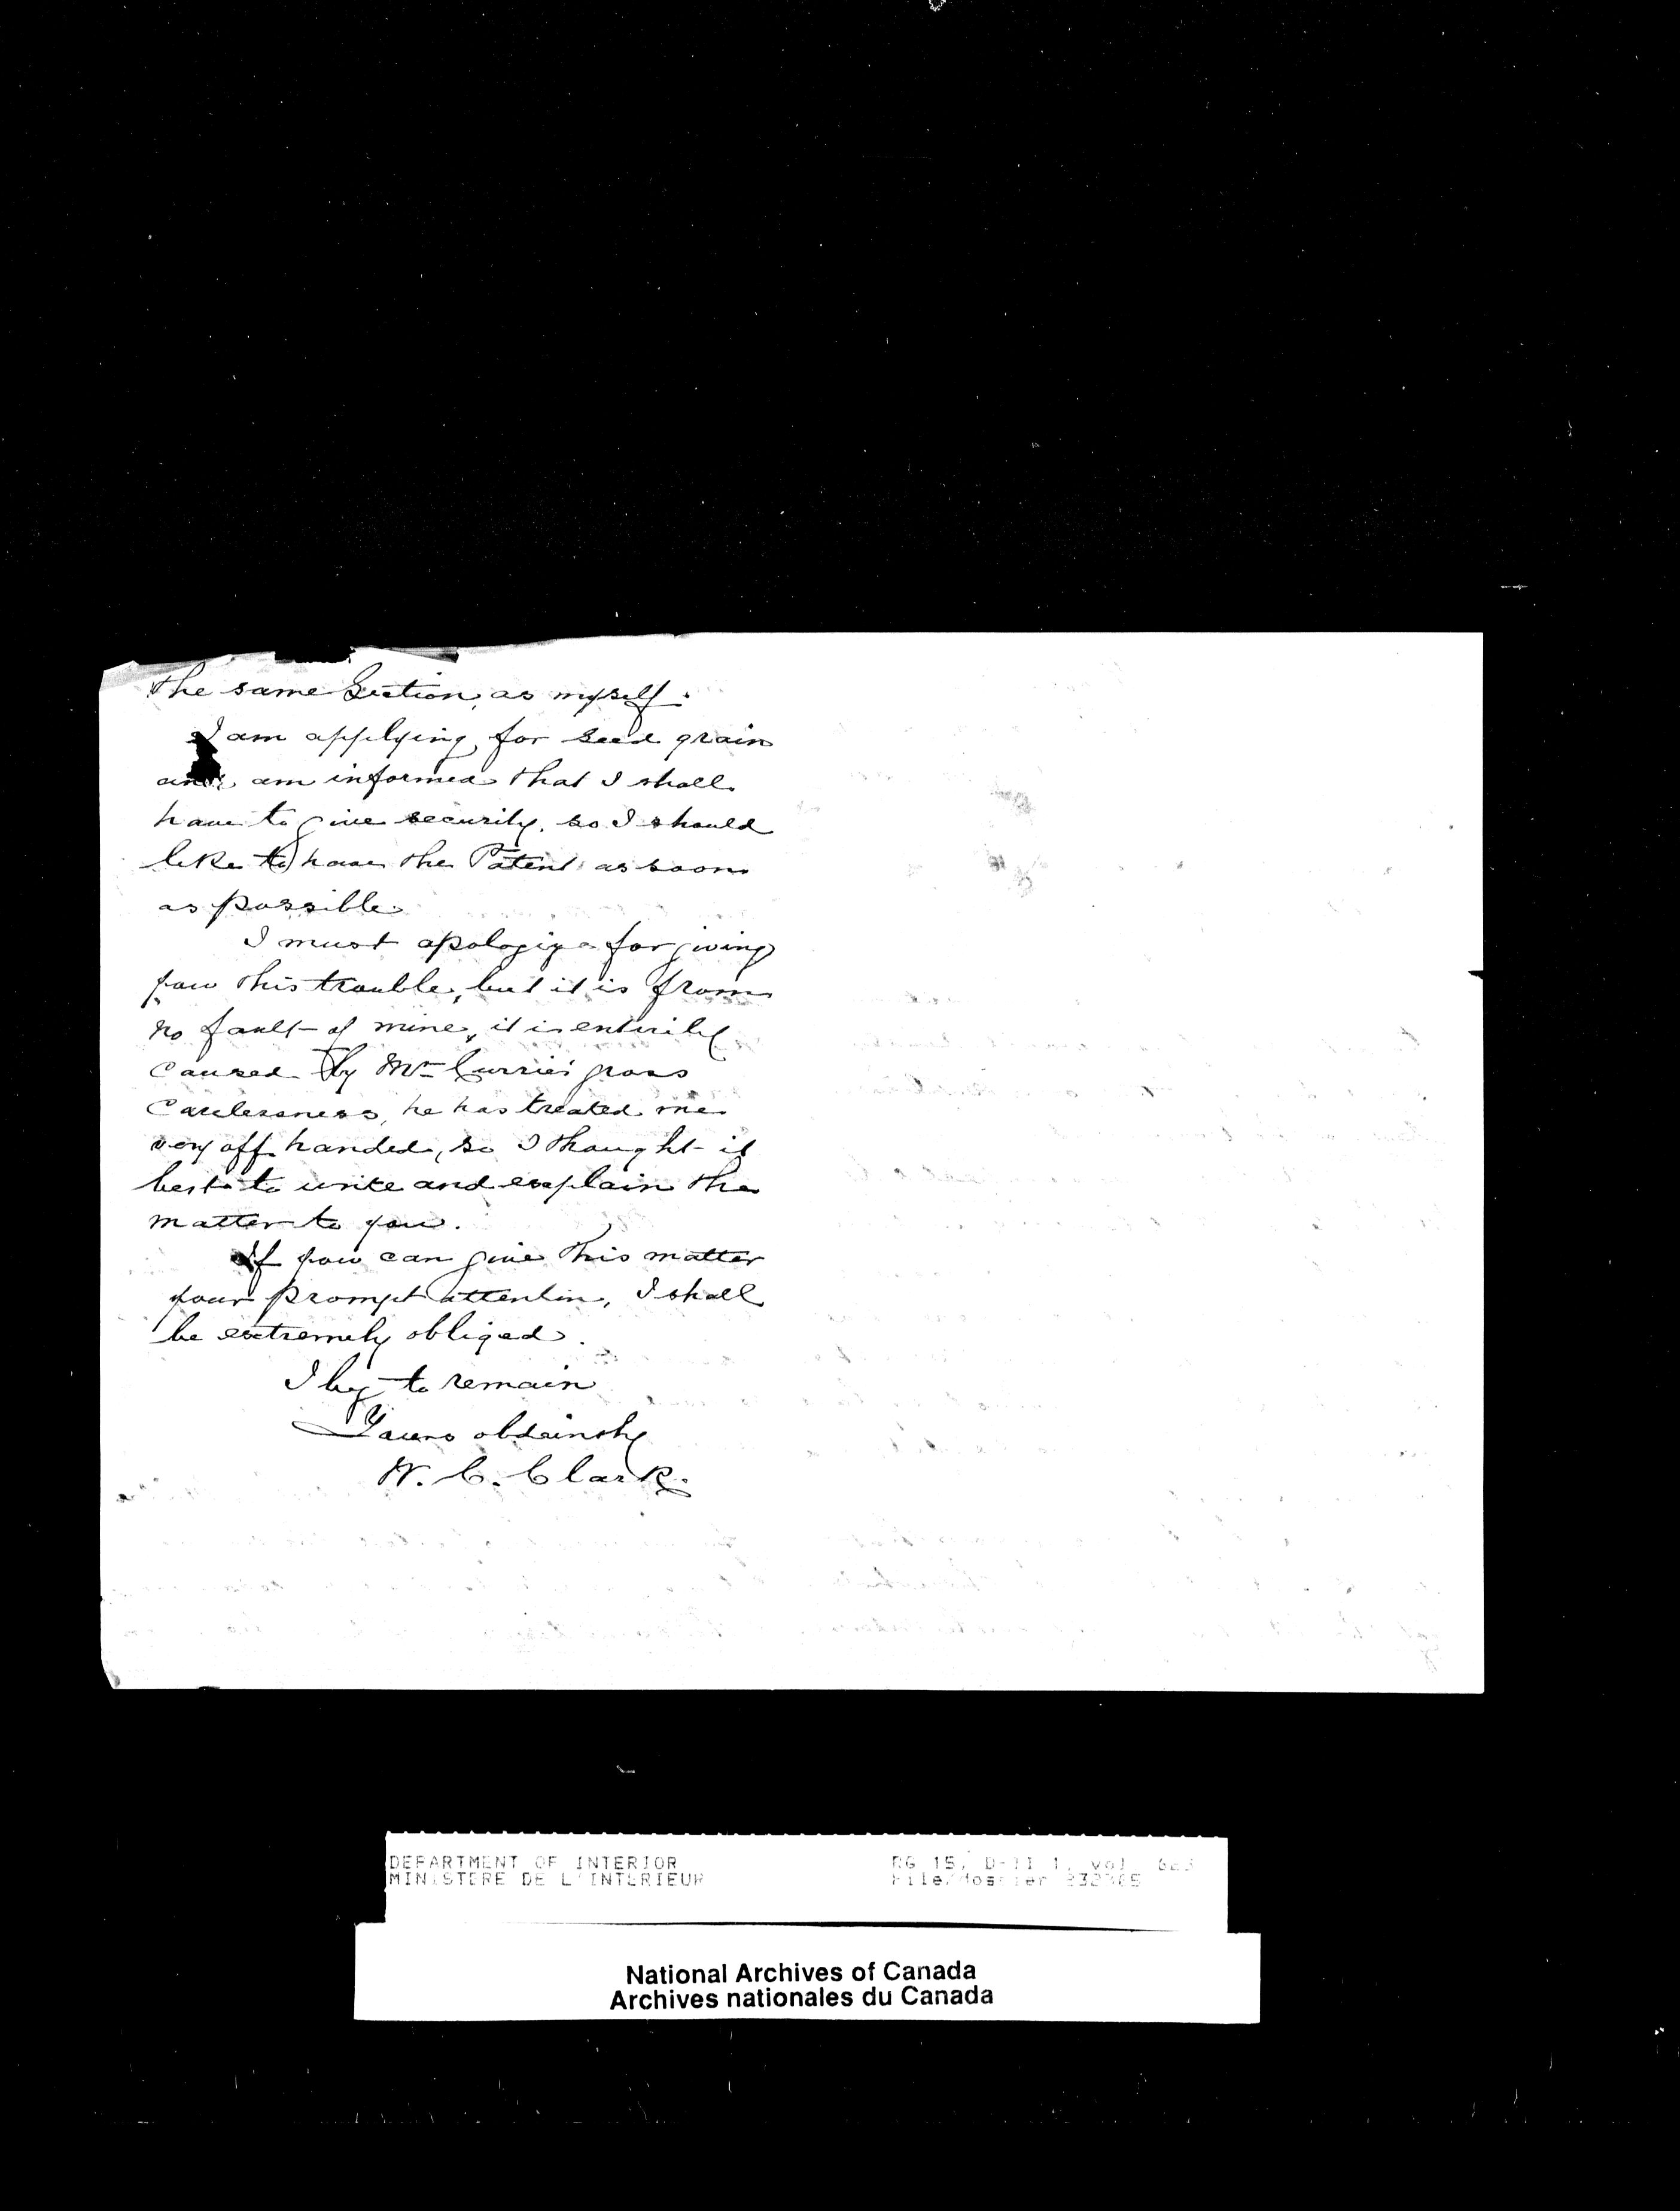 the same Section, as myself.
I am applying for seed grain
and am informed that I shall
have to give security, so I should
like to have the Patent as soon
as possible
I must apologize for giving
you this trouble, but it is from
no fault of mine, it is entirily
caused by Mr Currie's gross
carelessness, he has treated me
very off handed, so I thought it
best to write and explain the
matter to you.
If you can give this matter
your prompt attention, I shall
be extremely obliged.
I beg to remain
Yours
W. C. Clark.
DEPARTMENT OF INTERIOR RG 15, D-II 1, vol
MINISTERE DE L'INTERIEUR File/dossier
National Archives of Canada
Archives nationales du Canada